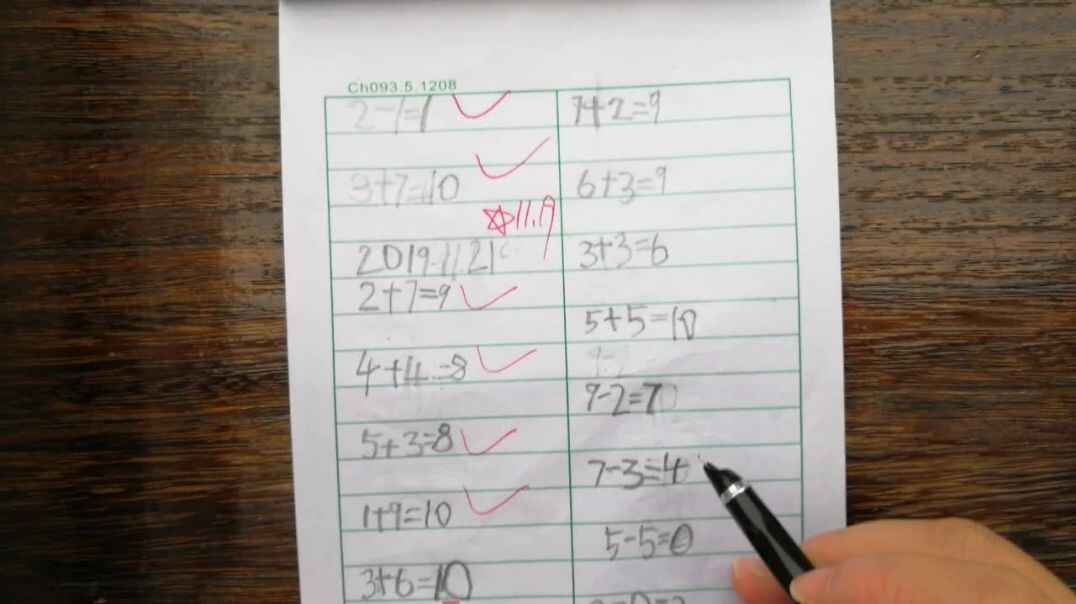 Ch093.5.1208
2-1=1
3+7=10
11.19
2019.11.21
2+7=9
4+4=8
5+3=8
1+9=10
3+6=10
7+2=9
6+3=9
3+3=6
5+5=10
9-2=7
7-3=4
5-5=0